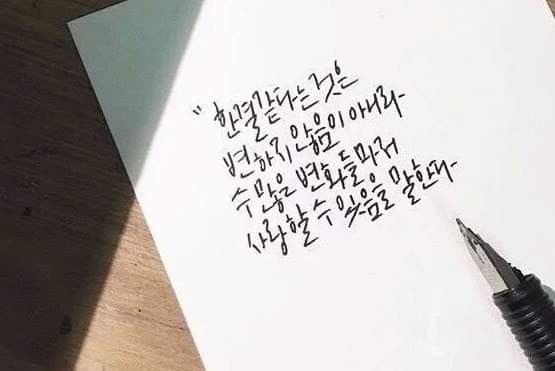 " 한결같다는 것은
변하지 않음이 아니라
수많은 변화들마저
사랑할 수 있음을 말한다